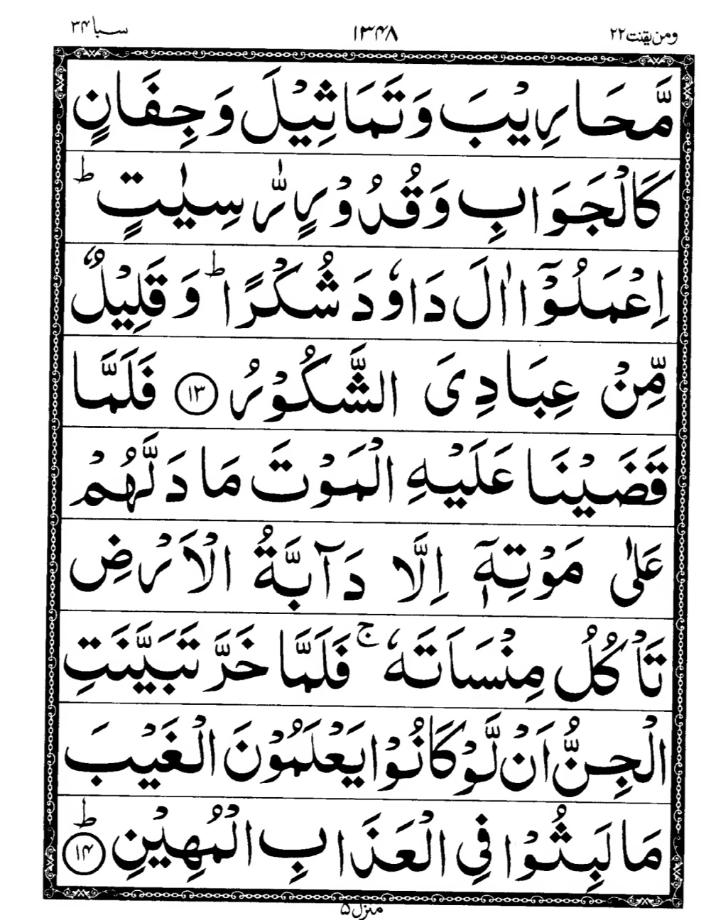 ومن یقنت ۲۲ ۱۳۴۸ سبا ۳۴
مَّحَارِیْبَ وَتَمَاثِیْلَ وَجِفَانٍ
كَالْجَوَابِ وَقُدُوْرٍ رّٰسِیٰتٍ ؕ
اِعْمَلُوْۤا اٰلَ دَاوٗدَ شُكْرًا ؕ وَقَلِیْلٌ
مِّنْ عِبَادِیَ الشَّكُوْرُ ۱۳ فَلَمَّا
قَضَیْنَا عَلَیْهِ الْمَوْتَ مَا دَلَّهُمْ
عَلٰی مَوْتِهٖۤ اِلَّا دَآبَّةُ الْاَرْضِ
تَاْكُلُ مِنْسَاَتَهٗ ۚ فَلَمَّا خَرَّ تَبَیَّنَتِ
الْجِنُّ اَنْ لَّوْ كَانُوْا یَعْلَمُوْنَ الْغَیْبَ
مَا لَبِثُوْا فِی الْعَذَابِ الْمُهِیْنِ ؕ ۱۴
منزل ۵